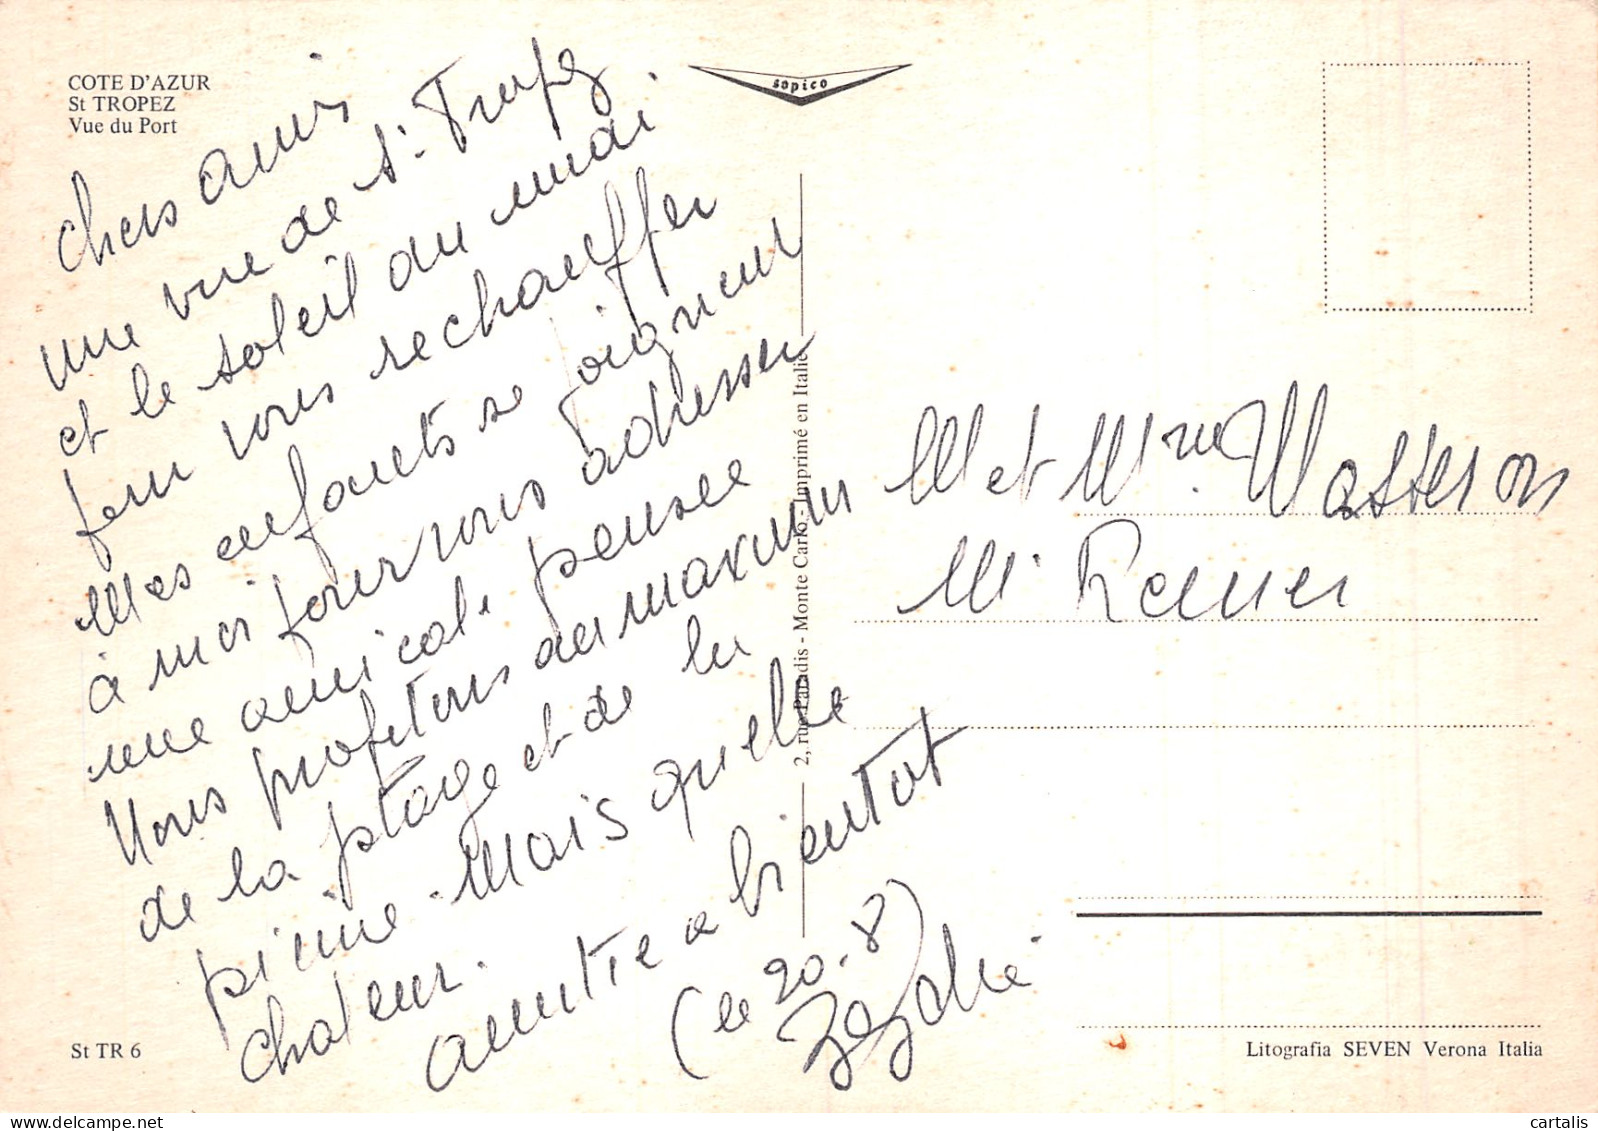 COTE D'AZUR
St TROPEZ
Vue du Port
sopico
Chers amis
une vue de St. Tropez
et le soleil du midi
pour vous rechauffer
Mes enfants se joignent
à moi pour vous adresser
une amicale pensée
Nous profitons au maximum
de la plage et de la
piscine. Mais quelle
chaleur.
amitié a bientot
(le 20.8)
M et Mme
Mr
2, rue Paradis - Monte Carlo - Imprimé en Italie
St TR 6
Litografia SEVEN Verona Italia
cartalis